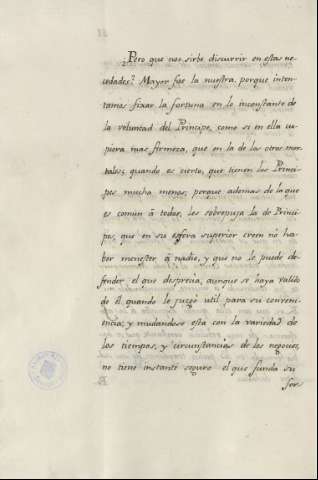 ¿Pero que nos sirbe discurrir en estas ne-
cedades? Mayor fue la nuestra, porque inten-
tamos fixar la fortuna en lo inconstante de
la voluntad del Principe, como si en ella cu-
piera mas firmeza, que en la de los otros mor-
tales; quando es cierto, que tienen los Princi-
pes mucha menos; porque ademas de la que
es comun á todos, les sobrepuja la de Princi-
pes, que en su esfera superior creen no ha-
ber menester á nadie, y que no le puede de-
fender el que desprecia, aunque se haya valido
de él quando le juzgó util para su conveni-
encia; y mudandose esta con la variedad de
los tiempos, y circunstancias de los negocios,
no tiene instante seguro el que funda su
for-